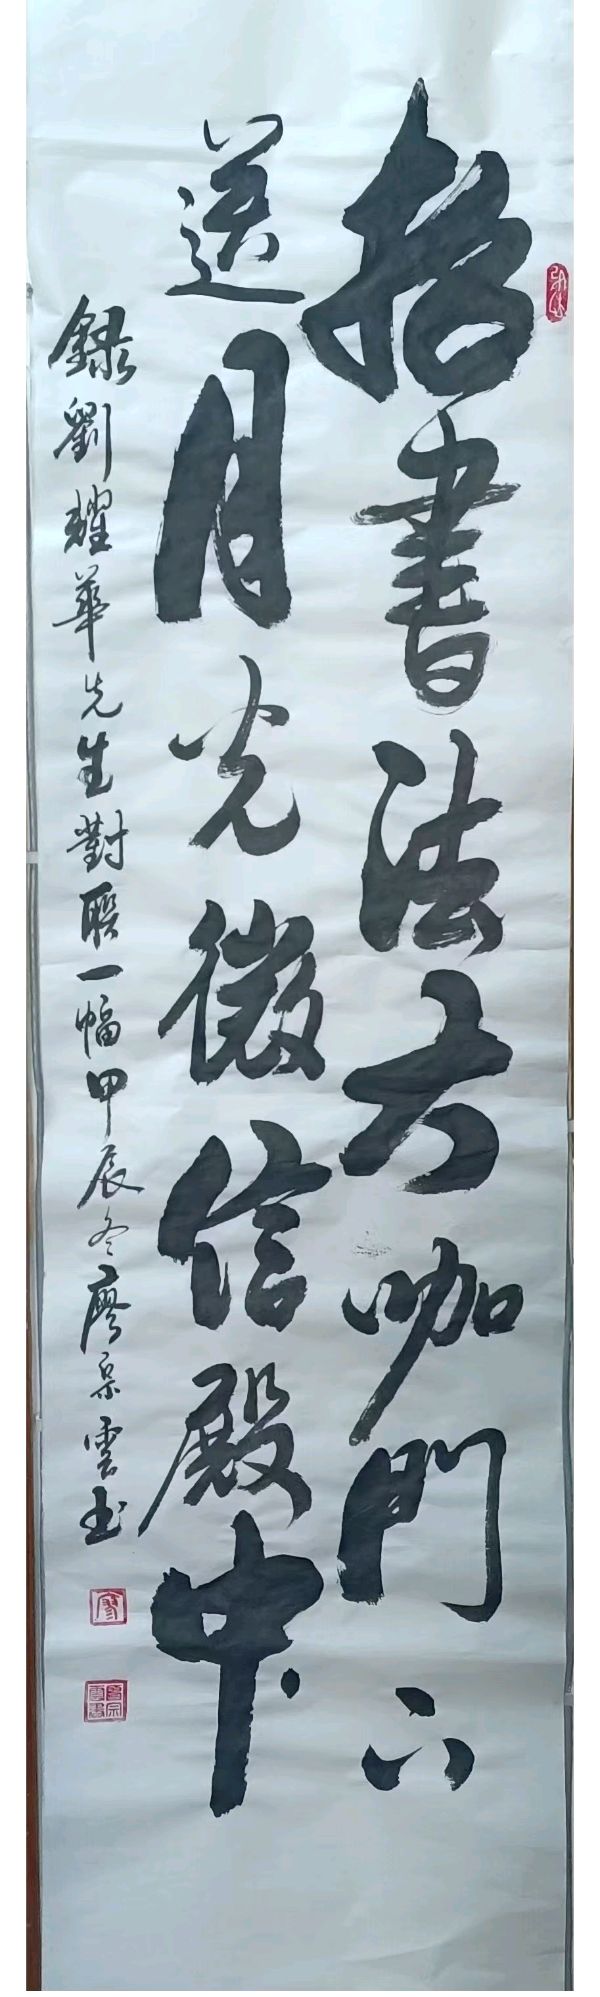 招書法大咖門下
送月光微信殿中
錄劉耀華先生對聯一幅甲辰冬廖宗雲书
廖